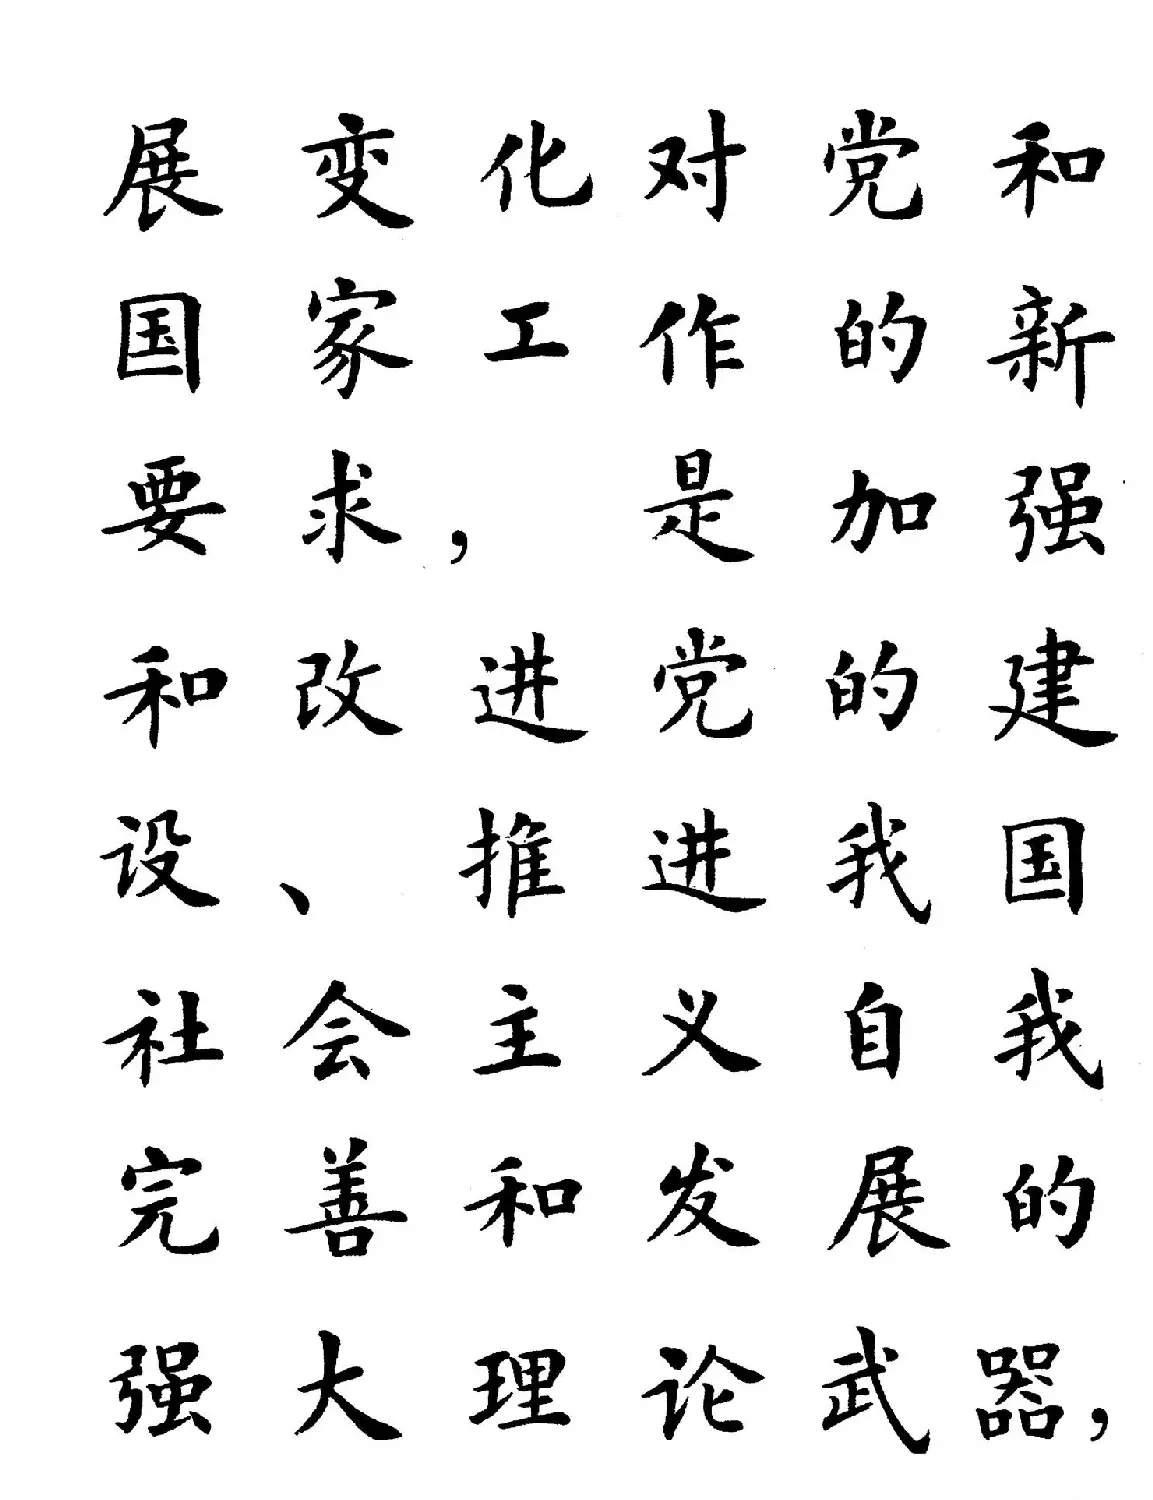 展变化对党和
国家工作的新
要求，是加强
和改进党的建
设、推进我国
社会主义自我
完善和发展的
强大理论武器，